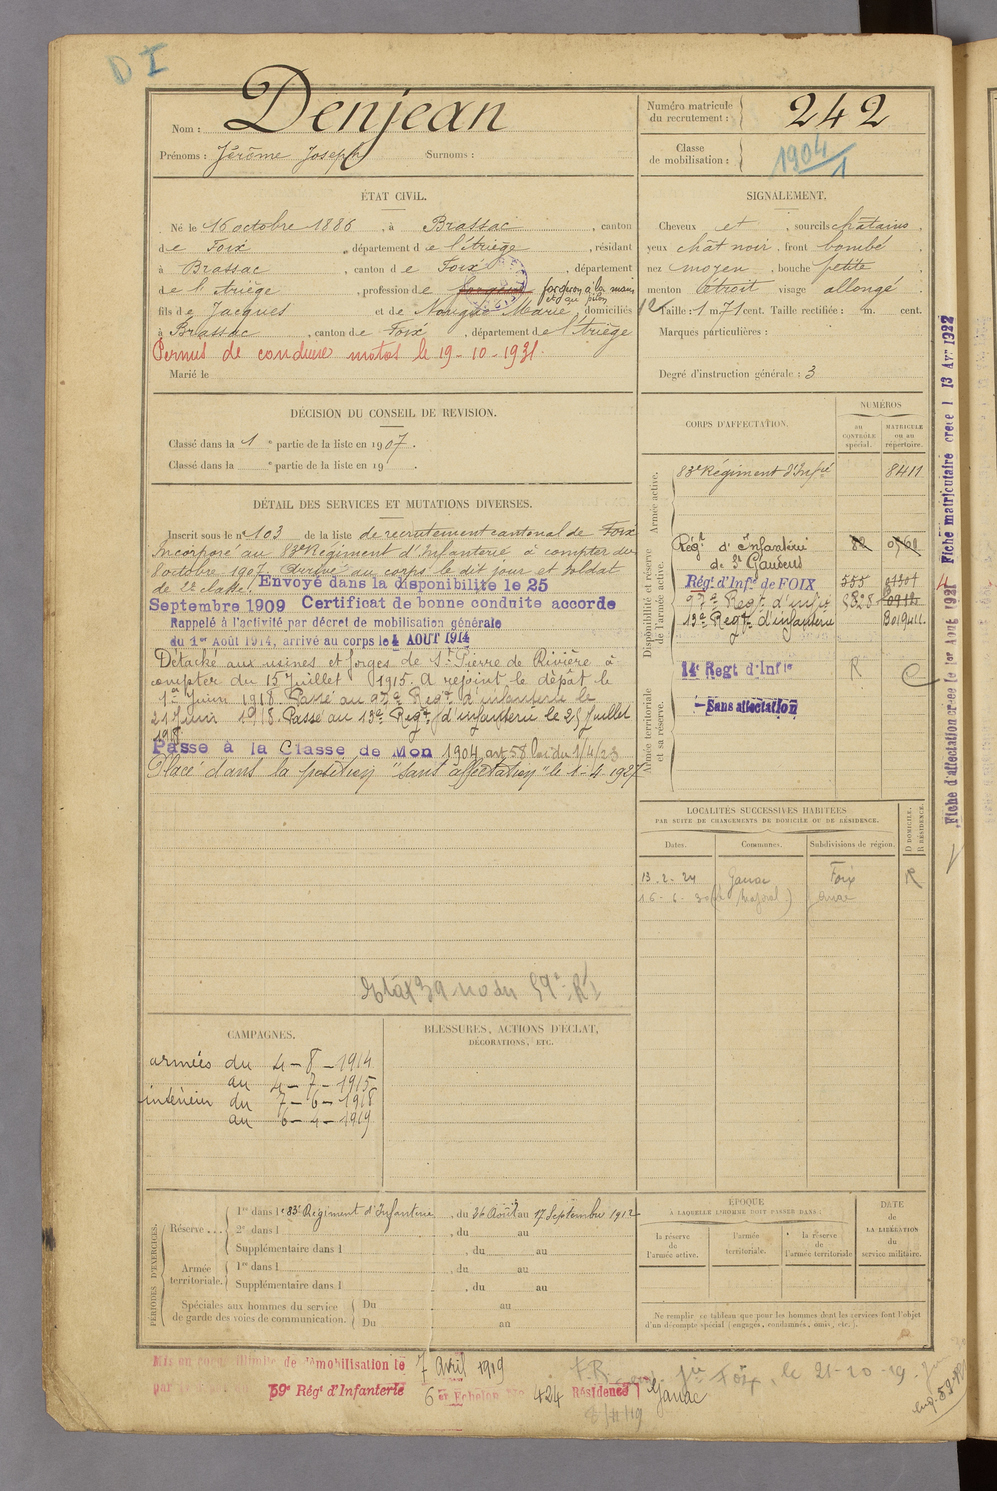 D I
Nom : Denjean
Prénoms : Jérôme Joseph Surnoms :
Numéro matricule du recrutement : 242
Classe de mobilisation : 1904/1
ÉTAT CIVIL.
Né le 16 octobre 1886, à Brassac, canton
de Foix, département de l'Ariège, résidant
à Brassac, canton de Foix, département
de l'Ariège, profession de forgeron forgeron à la main et au pilon
fils de Jacques et de Marie, domiciliés
à Brassac, canton de Foix, département de l'Ariège
Permis de conduire motos le 19-10-1931.
Marié le
SIGNALEMENT.
Cheveux et, sourcils châtains,
yeux chât noir, front bombé
nez moyen, bouche petite,
menton étroit visage allongé
Taille : 1 m 71 cent. Taille rectifiée : m. cent.
Marques particulières :
Degré d'instruction générale : 3
DÉCISION DU CONSEIL DE REVISION.
Classé dans la 1e partie de la liste en 1907.
Classé dans la e partie de la liste en 19 .
DÉTAIL DES SERVICES ET MUTATIONS DIVERSES.
Inscrit sous le n° 103 de la liste de recrutement cantonal de Foix
Incorporé au 83e Régiment d'Infanterie à compter du
8 octobre 1907. Arrivé au corps le dit jour et soldat
de 2e classe. Envoyé dans la disponibilite le 25
Septembre 1909 Certificat de bonne conduite accorde
Rappelé à l'activité par décret de mobilisation générale
du 1er Août 1914, arrivé au corps le 4 AOUT 1914
Détaché aux usines et forges de St Pierre de Rivière à
compter du 15 Juillet 1915. A rejoint le dépôt le
1er Juin 1918. Passé au 97e Regt d'infanterie le
21 Juin 1918. Passé au 13e Regt d'infanterie le 25 Juillet
1918
Passé à la Classe de Mon 1904 art 58 loi du 1/4/23
Placé dans la position "sans affectation" le 1-4-1927
59e RI
CORPS D'AFFECTATION.
NUMÉROS
au CONTRÔLE spécial.
MATRICULE ou au répertoire.
Armée active.
83e Régiment d'Infie 8411
Disponibilité et réserve de l'armée active.
Régt d'Infanterie de St Gaudens 82
Régt d'Infie de FOIX 555
97e Regt d'infie
13e Regt d'infanterie
14e Regt d'Infie R
Armée territoriale et sa réserve.
Sans affectation
Fiche d'affectation créée le 1er Aout 1921 Fiche matriculaire créée l 13 Avr 1922
LOCALITÉS SUCCESSIVES HABITÉES
PAR SUITE DE CHANGEMENTS DE DOMICILE OU DE RÉSIDENCE.
Dates. Communes. Subdivisions de région. D DOMICILE. R RÉSIDENCE.
13-2-24 Ganac Foix R
16-6-30
CAMPAGNES.
armées du 4-8-1914
au 4-7-1915
intérieur du 7-6-1918
au 6-4-1919
BLESSURES, ACTIONS D'ÉCLAT,
DÉCORATIONS, ETC.
PÉRIODES D'EXERCICES.
Réserve ... 1re dans le 83e Régiment d'Infanterie, du 26 Août au 17 Septembre 1912
2e dans l , du au
Supplémentaire dans l , du au
Armée territoriale. 1re dans l , du au
Supplémentaire dans l , du au
Spéciales aux hommes du service de garde des voies de communication. Du au
Du au
ÉPOQUE
À LAQUELLE L'HOMME DOIT PASSER DANS :
la réserve de l'armée active.
l'armée territoriale.
la réserve de l'armée territoriale
DATE de LA LIBÉRATION du service militaire.
Ne remplir ce tableau que pour les hommes dont les services font l'objet
d'un décompte spécial (engagés, condamnés, omis, etc.).
Mis en congé illimité de démobilisation le 7 Avril 1919
59e Régt d'Infanterie 6e Echelon No 424 Résidence Ganac
Foix, le 21-10-19